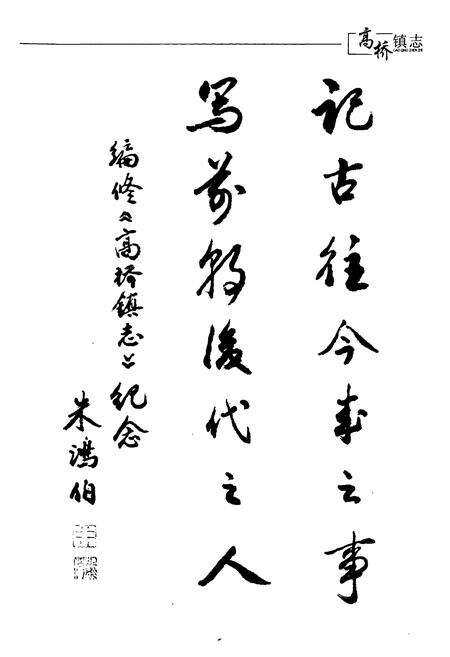 高桥镇志
记古往今来之事
写前朝後代之人
编修《高桥镇志》纪念
朱鸿伯